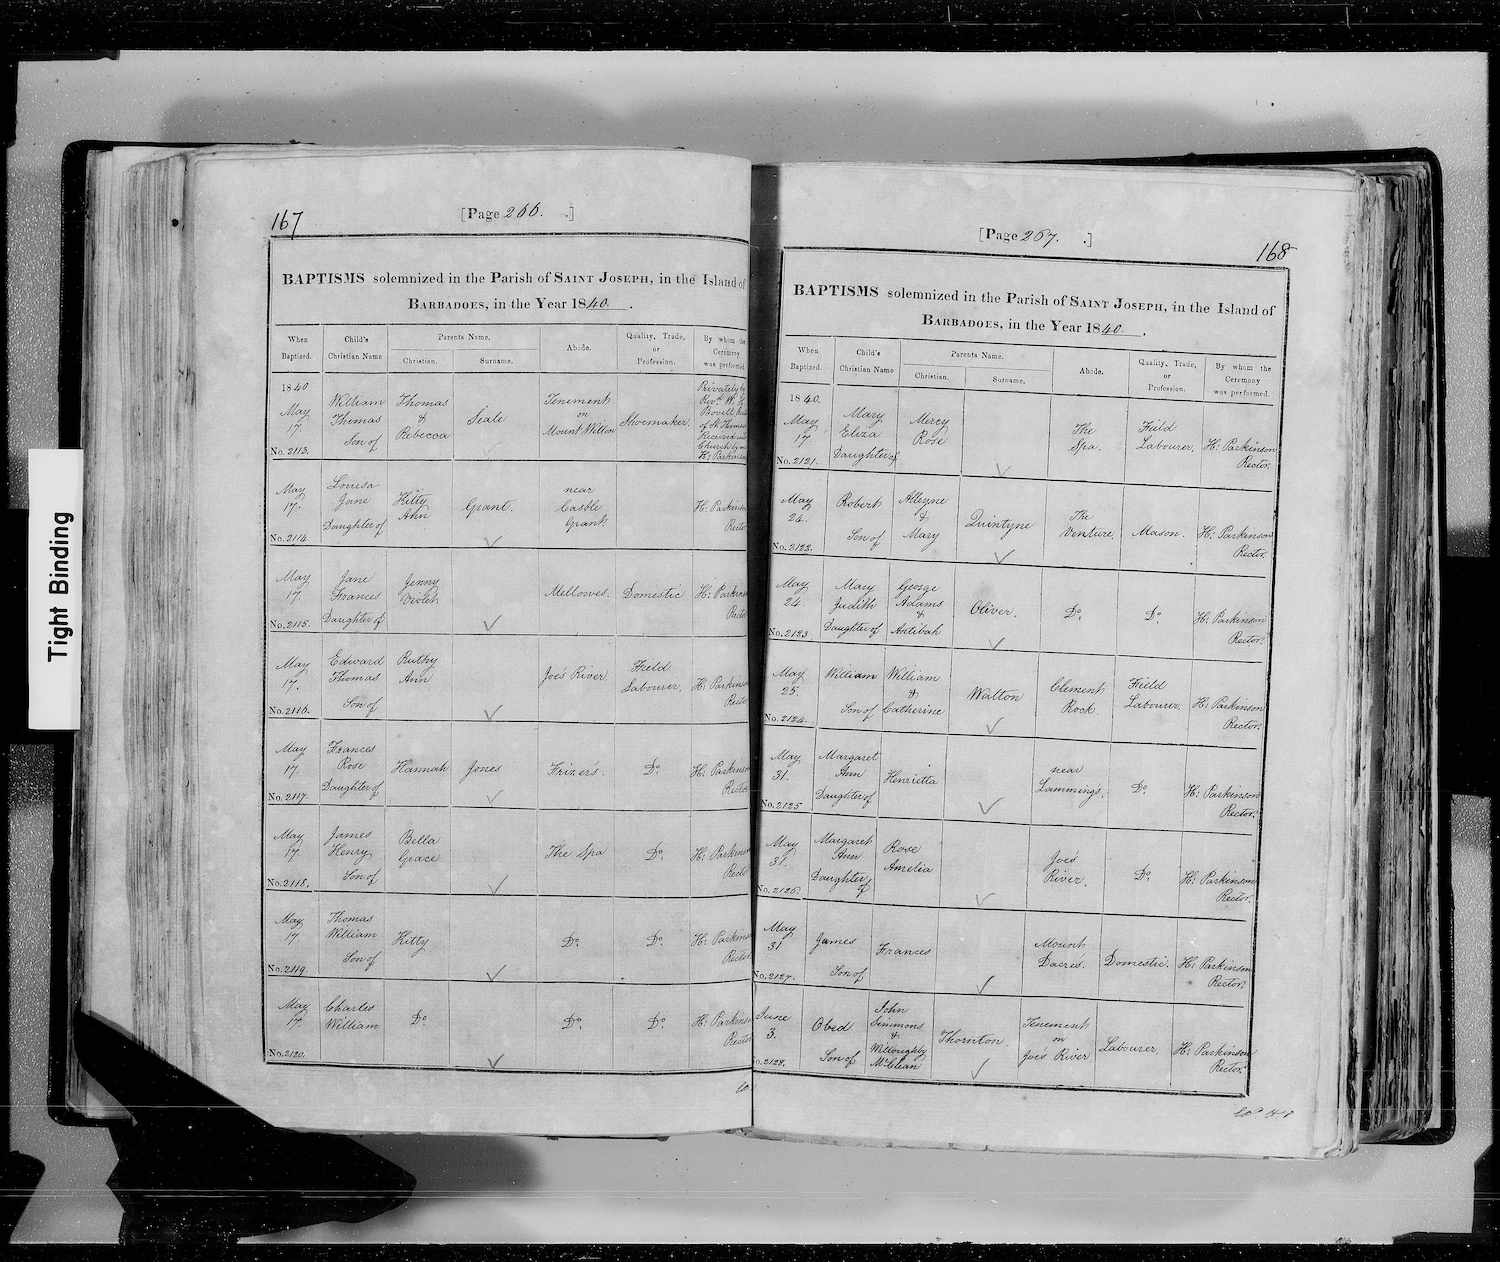 Tight Binding
167
[Page 266. .]
BAPTISMS solemnized in the Parish of SAINT JOSEPH, in the Island of
BARBADOES, in the Year 1840 .
When Baptized.
Child's Christian Name
Parents Name.
Christian.
Surname.
Abode.
Quality, Trade, or Profession.
By whom the Ceremony was performed
1840
May
17.
No. 2113.
William
Thomas
Son of
Thomas
&
Rebecca
Seale
Tenement
on
Mount Wilton
Shoemaker.
Privately by
Revd. W. H.
Bovell
of St Thomas
Received into
Church by me
H: Parkinson
May
17.
No. 2114
Louisa
Jane
Daughter of
Kitty
Ann
Grant.
near
Castle
Grant.
H: Parkinson
Rector
May
17.
No. 2115.
Jane
Frances
Daughter of
Jenny
Violet
Mellowes.
Domestic
H: Parkinson
Rector
May
17.
No. 2116.
Edward
Thomas
Son of
Ruthy
Ann
Joe's River
Field
Labourer.
H: Parkinson
Rector
May
17.
No. 2117.
Frances
Rose
Daughter of
Hannah
Jones
Frizer's.
Do.
H: Parkinson
Rector
May
17.
No. 2118.
James
Henry
Son of
Bella
Grace
The Spa
Do.
H: Parkinson
Rector
May
17
No. 2119
Thomas
William
Son of
Kitty
Do.
Do.
H: Parkinson
Rector
May
17.
No. 2120.
Charles
William
Do.
Do.
Do.
H: Parkinson
Rector
[Page 267. .]
168
BAPTISMS solemnized in the Parish of SAINT JOSEPH, in the Island of
BARBADOES, in the Year 1840 .
When Baptized.
Child's Christian Name
Parents Name.
Christian.
Surname.
Abode.
Quality, Trade, or Profession.
By whom the Ceremony was performed.
1840.
May
17
No. 2121.
Mary
Eliza
Daughter of
Mercy
Rose
The
Spa.
Field
Labourer.
H: Parkinson
Rector.
May
24.
No. 2122.
Robert
Son of
Alleyne
&
Mary
Quintyne
The
Venture.
Mason.
H: Parkinson
Rector.
May
24.
No. 2123
Mary
Judith
Daughter of
George
Adams
&
Antibah
Oliver.
Do.
Do.
H: Parkinson
Rector.
May
25.
No. 2124.
William
Son of
William
&
Catherine
Walton
Clement
Rock
Field
Labourer.
H: Parkinson
Rector.
May
31.
No. 2125
Margaret
Ann
Daughter of
Henrietta
near
Lammings.
Do.
H: Parkinson
Rector.
May
31.
No. 2126
Margaret
Ann
Daughter of
Rose
Amelia
Joe's
River.
Do.
H: Parkinson
Rector.
May
31
No. 2127.
James
Son of
Frances
Mount
Dacres.
Domestic.
H: Parkinson
Rector.
June
3.
o. 2128.
Obed
Son of
John
Simmons
&
Willoughby
McClean
Thornton.
Tenement
on
Joe's River
Labourer.
H: Parkinson
Rector.